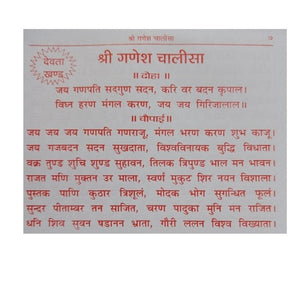 श्री गणेश चालीसा
७
देवता
खण्ड
श्री गणेश चालीसा
॥ दोहा ॥
जय गणपति सदगुण सदन, करि वर बदन कृपाल।
विघ्न हरण मंगल करण, जय जय गिरिजालाल॥
॥ चौपाई ॥
जय जय जय गणपति गणराजू, मंगल भरण करण शुभ काजू।
जय गजबदन सदन सुखदाता, विश्वविनायक बुद्धि विधाता।
वक्र तुण्ड शुचि शुण्ड सुहावन, तिलक त्रिपुण्ड भाल मन भावन।
राजत मणि मुक्तन उर माला, स्वर्ण मुकुट शिर नयन विशाला।
पुस्तक पाणि कुठार त्रिशूलं, मोदक भोग सुगन्धित फूलं।
सुन्दर पीताम्बर तन साजित, चरण पादुका मुनि मन राजित।
धनि शिव सुवन षडानन भ्राता, गौरी ललन विश्व विख्याता।